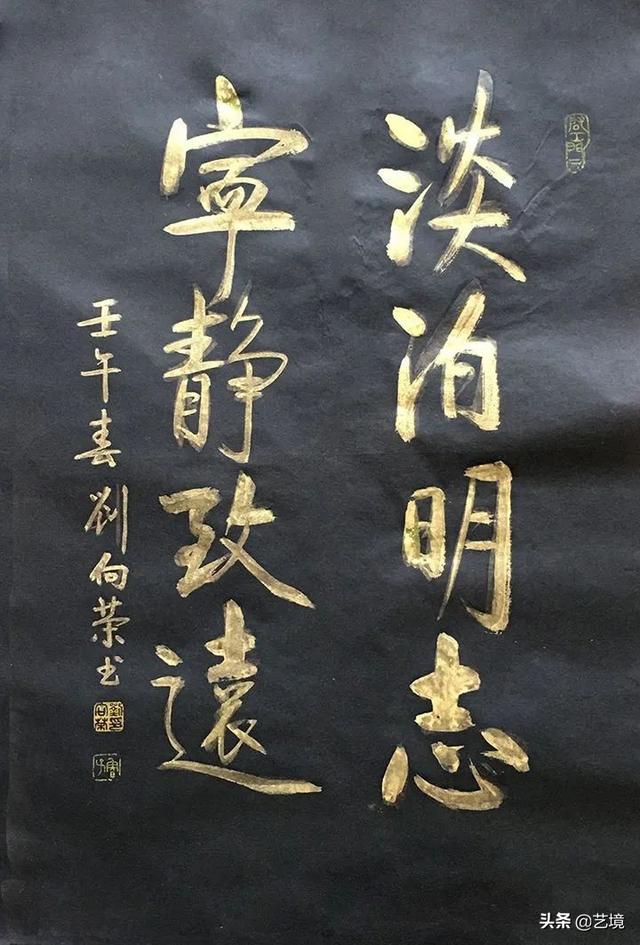 淡泊明志
寧静致遠
壬午春劉向荣书
头条 @艺境